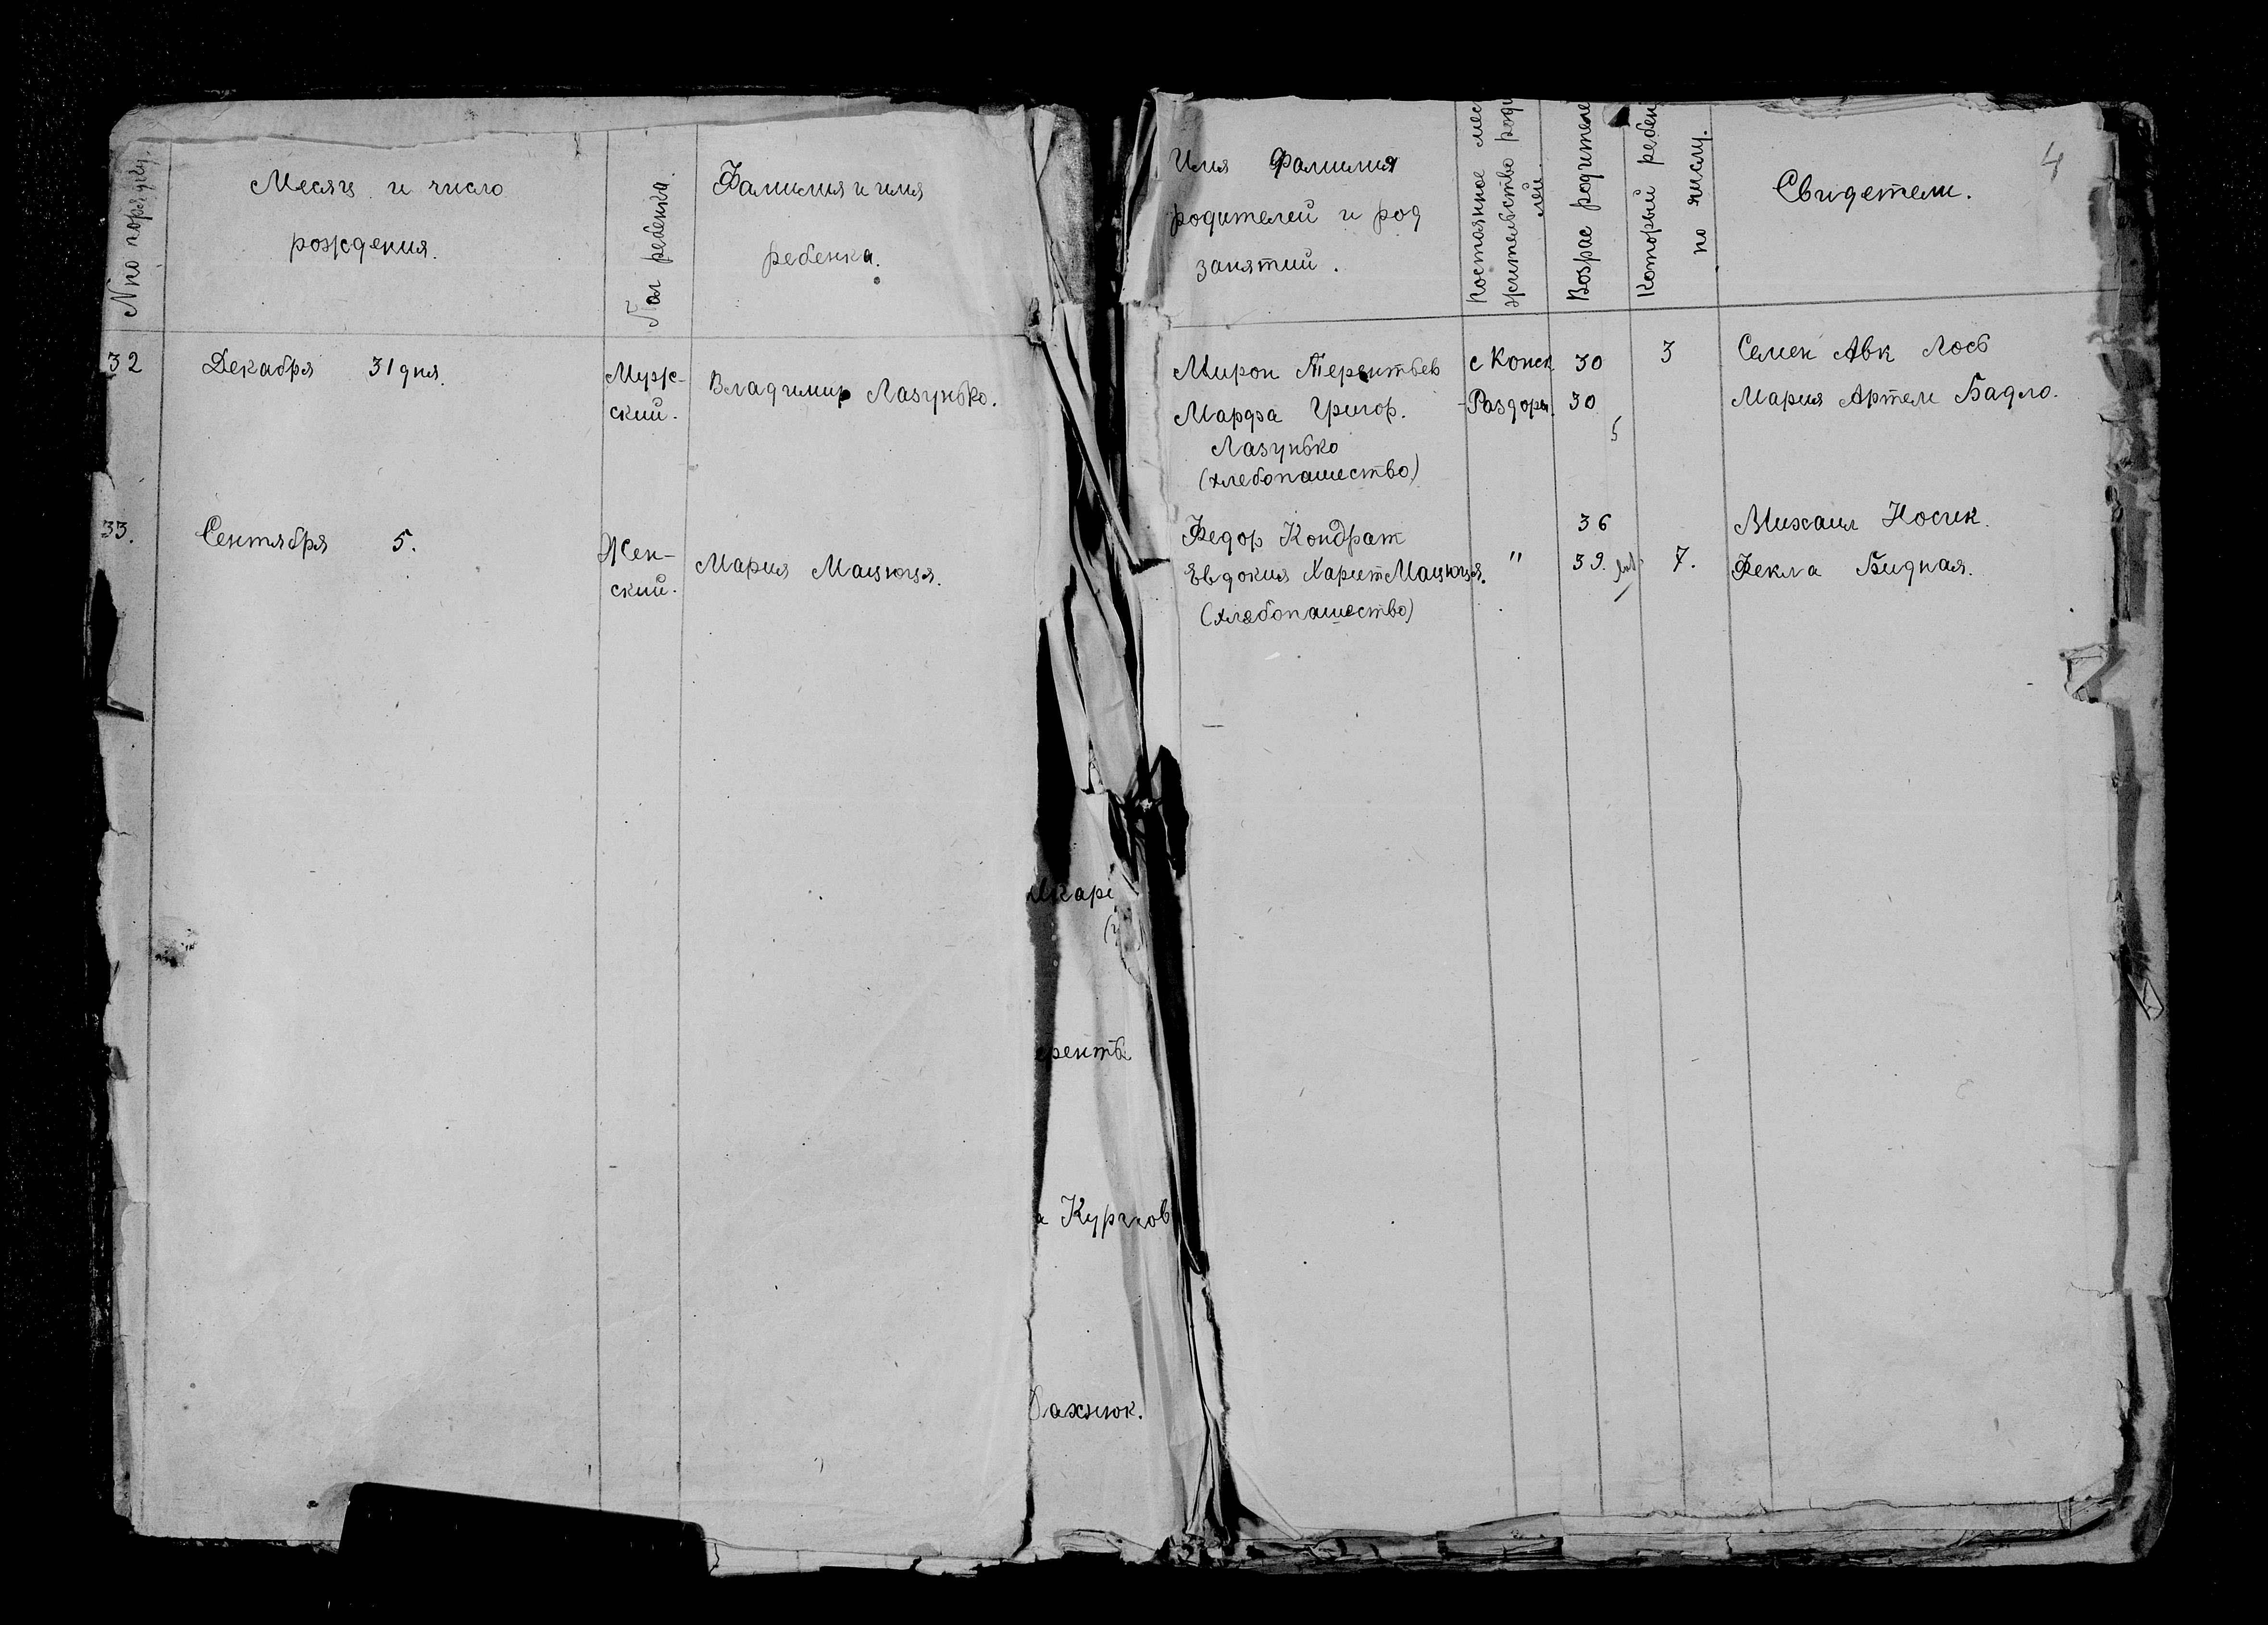 № по порядку.
Месяц и число
рождения.
Пол ребенка.
Фамилия и имя
ребенка.
32
Декабря 31 дня.
Муж-
ский.
Владимир Лазунько.
33.
Сентября 5.
Жен-
ский.
Мария Мацюця.
Курилов
4
Имя Фамилия
родителей и род
занятий.
Постоянное мес
жительство роди
лей.
Возрас родителе
Который ребен
по числу.
Свидетели.
Мирон Терентьев
Марфа Григор.
Лазунько
(хлебопашество)
с Конск
-Раздоры.
30
30
3
Семен Авк Лось
Мария Артем Бадло.
Федор Кондрат
Евдокия Харит Мацюця.
(хлебопашество)
"
36
39.
7.
Михаил Носик.
Фекла Бидная.